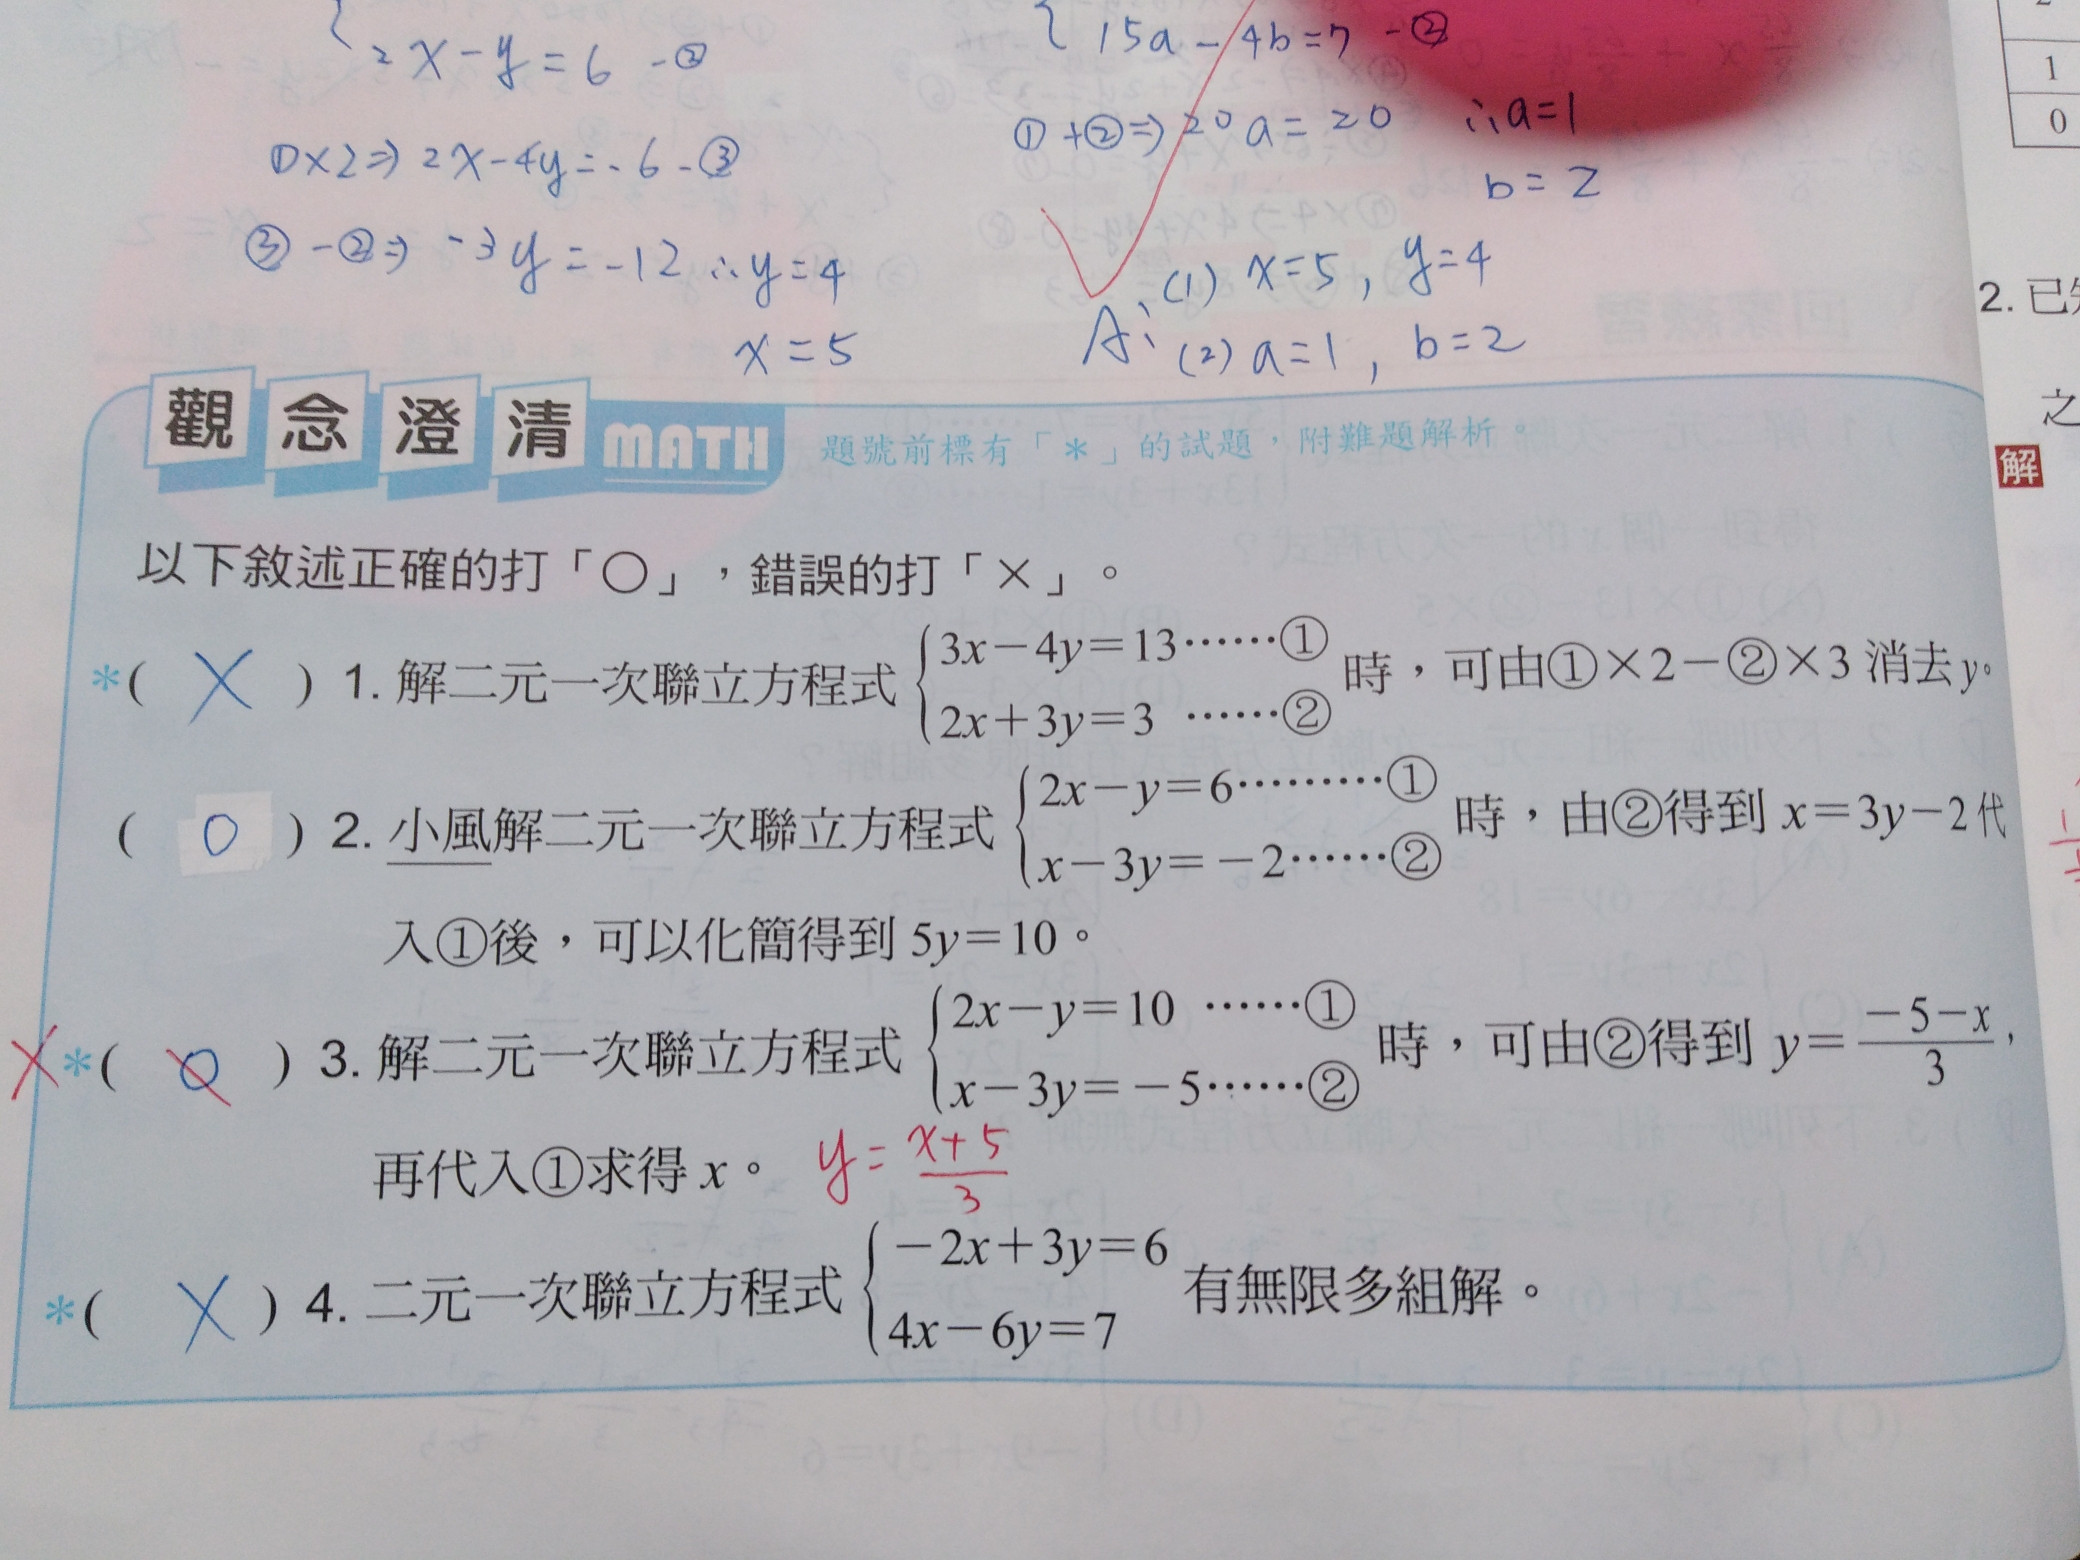 2x-y=6 -②
①×2⇒ 2x-4y=-6 -③
③-②⇒ -3y=-12 ∴y=4
x=5
15a-4b=7 -②
①+②⇒ 20a=20 ∴a=1
b=2
A: (1) x=5, y=4
(2) a=1, b=2
觀念澄清 MATH 題號前標有「*」的試題,附難題解析。
以下敘述正確的打「○」,錯誤的打「×」。
*( X ) 1. 解二元一次聯立方程式 { 3x-4y=13……① 2x+3y=3 ……② 時,可由①×2-②×3 消去y。
( O ) 2. 小風解二元一次聯立方程式 { 2x-y=6………① x-3y=-2……② 時,由②得到 x=3y-2代
入①後,可以化簡得到 5y=10。
X *( O ) 3. 解二元一次聯立方程式 { 2x-y=10 ……① x-3y=-5……② 時,可由②得到 y=(-5-x)/3,
再代入①求得 x。 y=(x+5)/3
*( X ) 4. 二元一次聯立方程式 { -2x+3y=6 4x-6y=7 有無限多組解。
1
0
2. 已
之
解